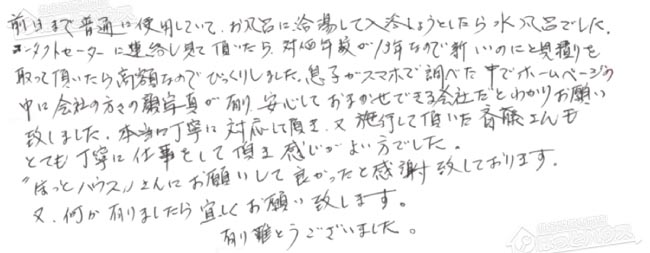 前日まで普通に使用していて、お風呂に給湯して入浴しようとしたら水風呂でした。
コンタクトセンターに連絡し見て頂いたら、対価年数が13年なので新しいのにと見積りを
取って頂いたら高額なのでびっくりしました。息子がスマホで調べた中でホームページの
中に会社の方々の顔写真が有り、安心しておまかせできる会社だとわかりお願い
致しました。本当に丁寧に対応して頂き、又施行して頂いた斉藤さんも
とても丁寧に仕事をして頂き感じがよい方でした。
"ほっとハウス"さんにお願いして良かったと感謝致しております。
又、何か有りましたら宜しくお願い致します。
有り難とうございました。